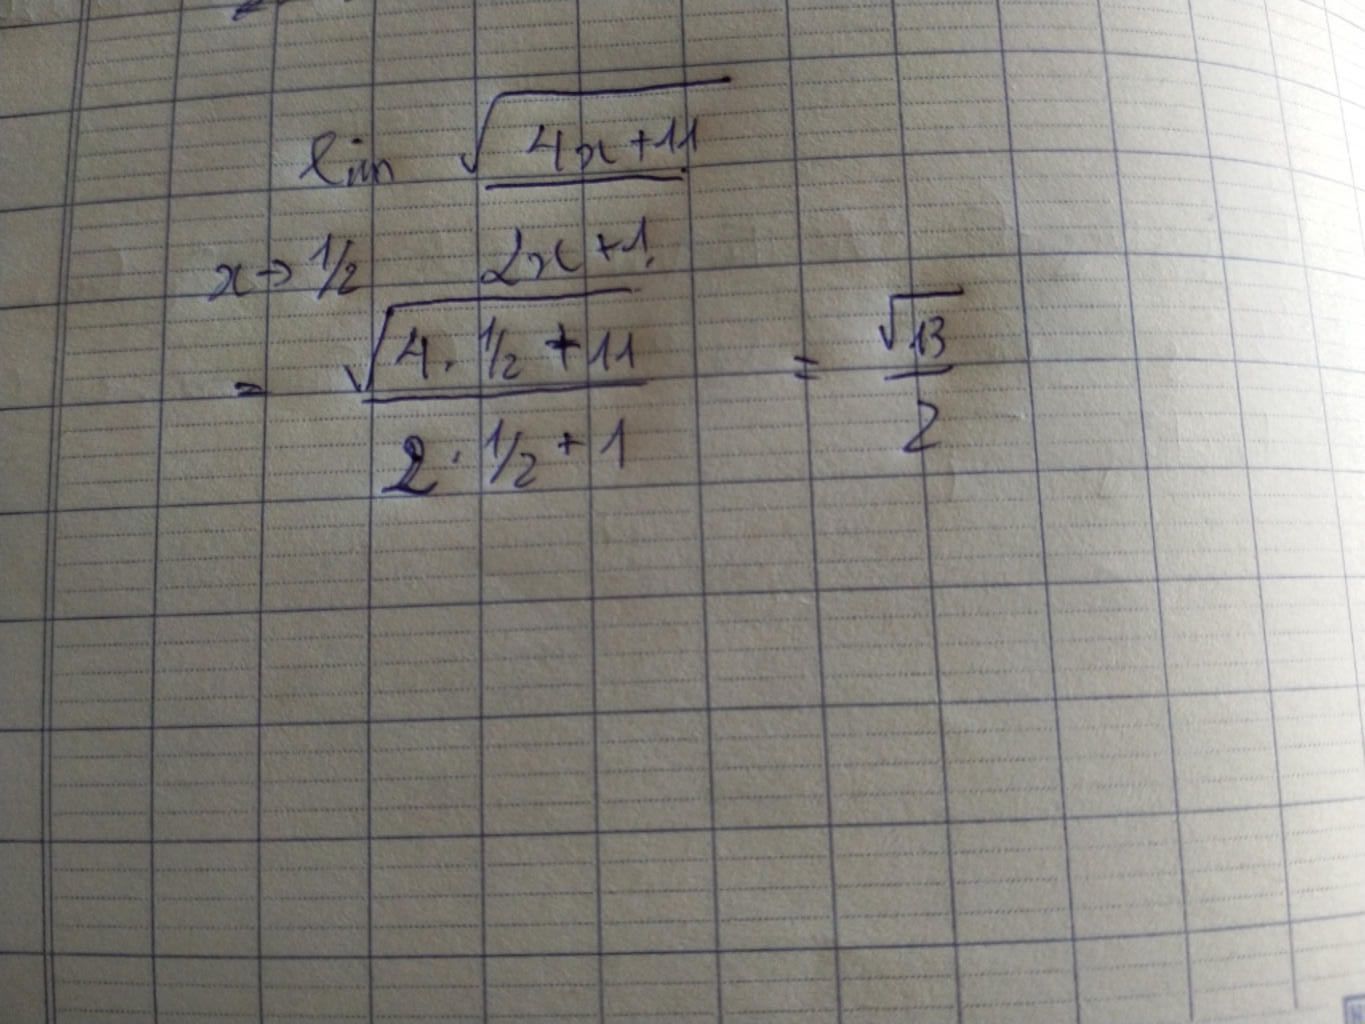 lim √(4x+11)
x→1/2 2x+1
= √(4. 1/2 + 11) / (2 . 1/2 + 1) = √13 / 2